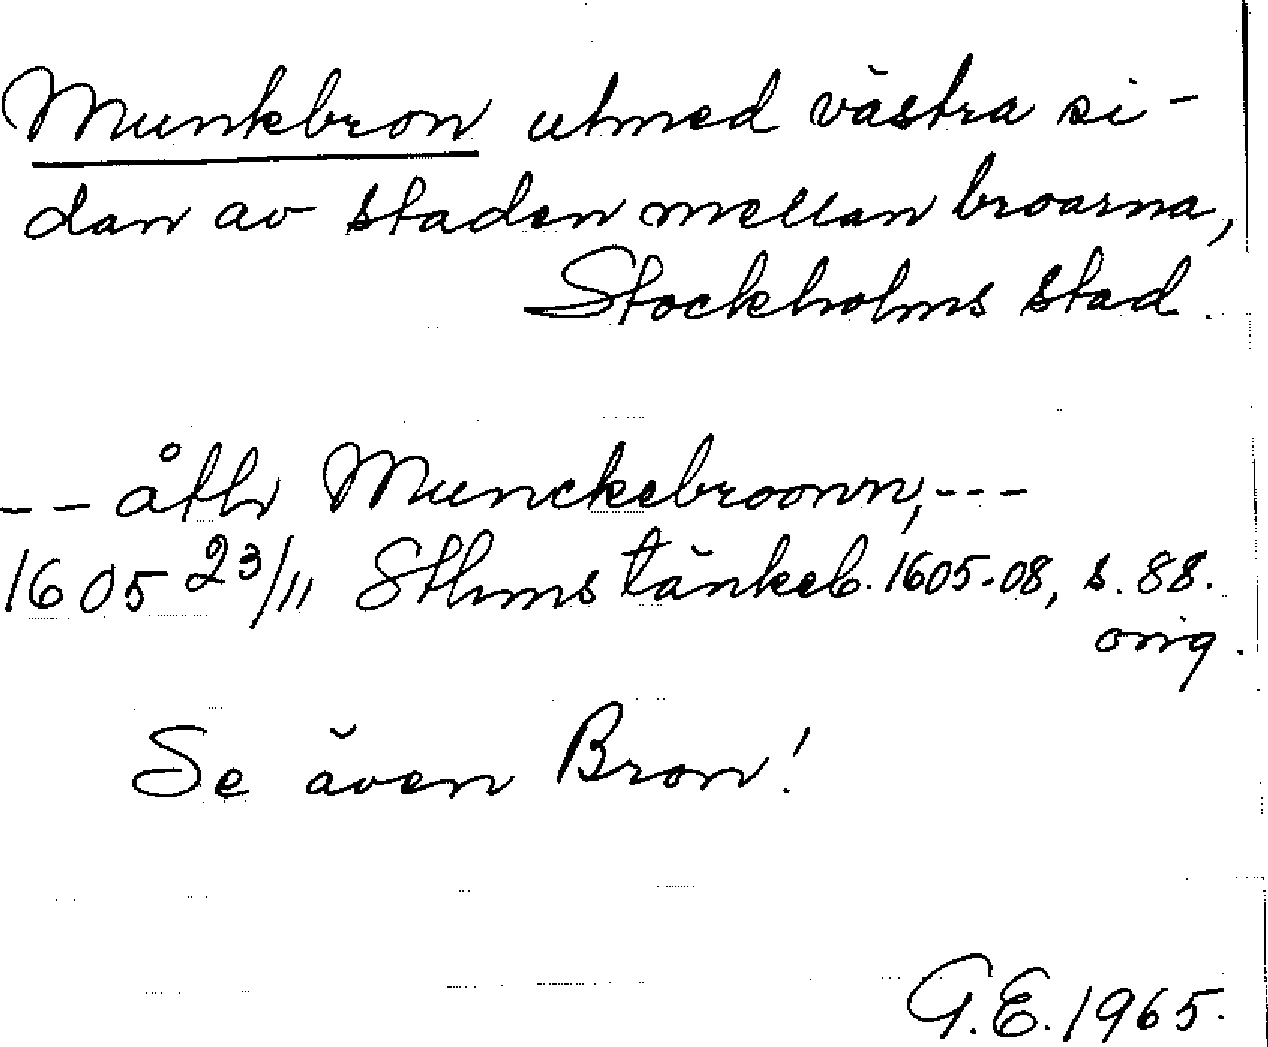 Munkbron utmed västra si-
dan av staden mellan broarna,
Stockholms stad.
-- åthr Munckebroonn, ---
1605 23/11 Sthms tänkeb. 1605-08, s. 88.
orig.
Se även Bron!
G.E. 1965.